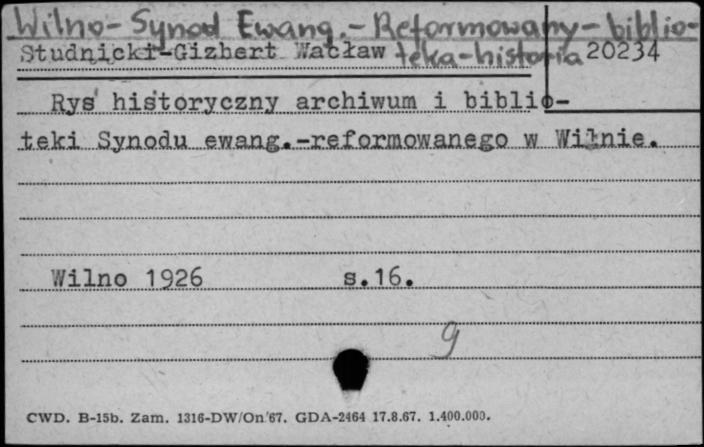 Wilno-Synod Ewang.-Reformowany-biblio-
teka-historia
Studnicki-Gizbert Wacław 20234
Rys historyczny archiwum i biblio-
teki Synodu ewang.-reformowanego w Wilnie.
Wilno 1926 s.16.
g
CWD. B-15b. Zam. 1316-DW/On/67. GDA-2464 17.8.67. 1.400.000.